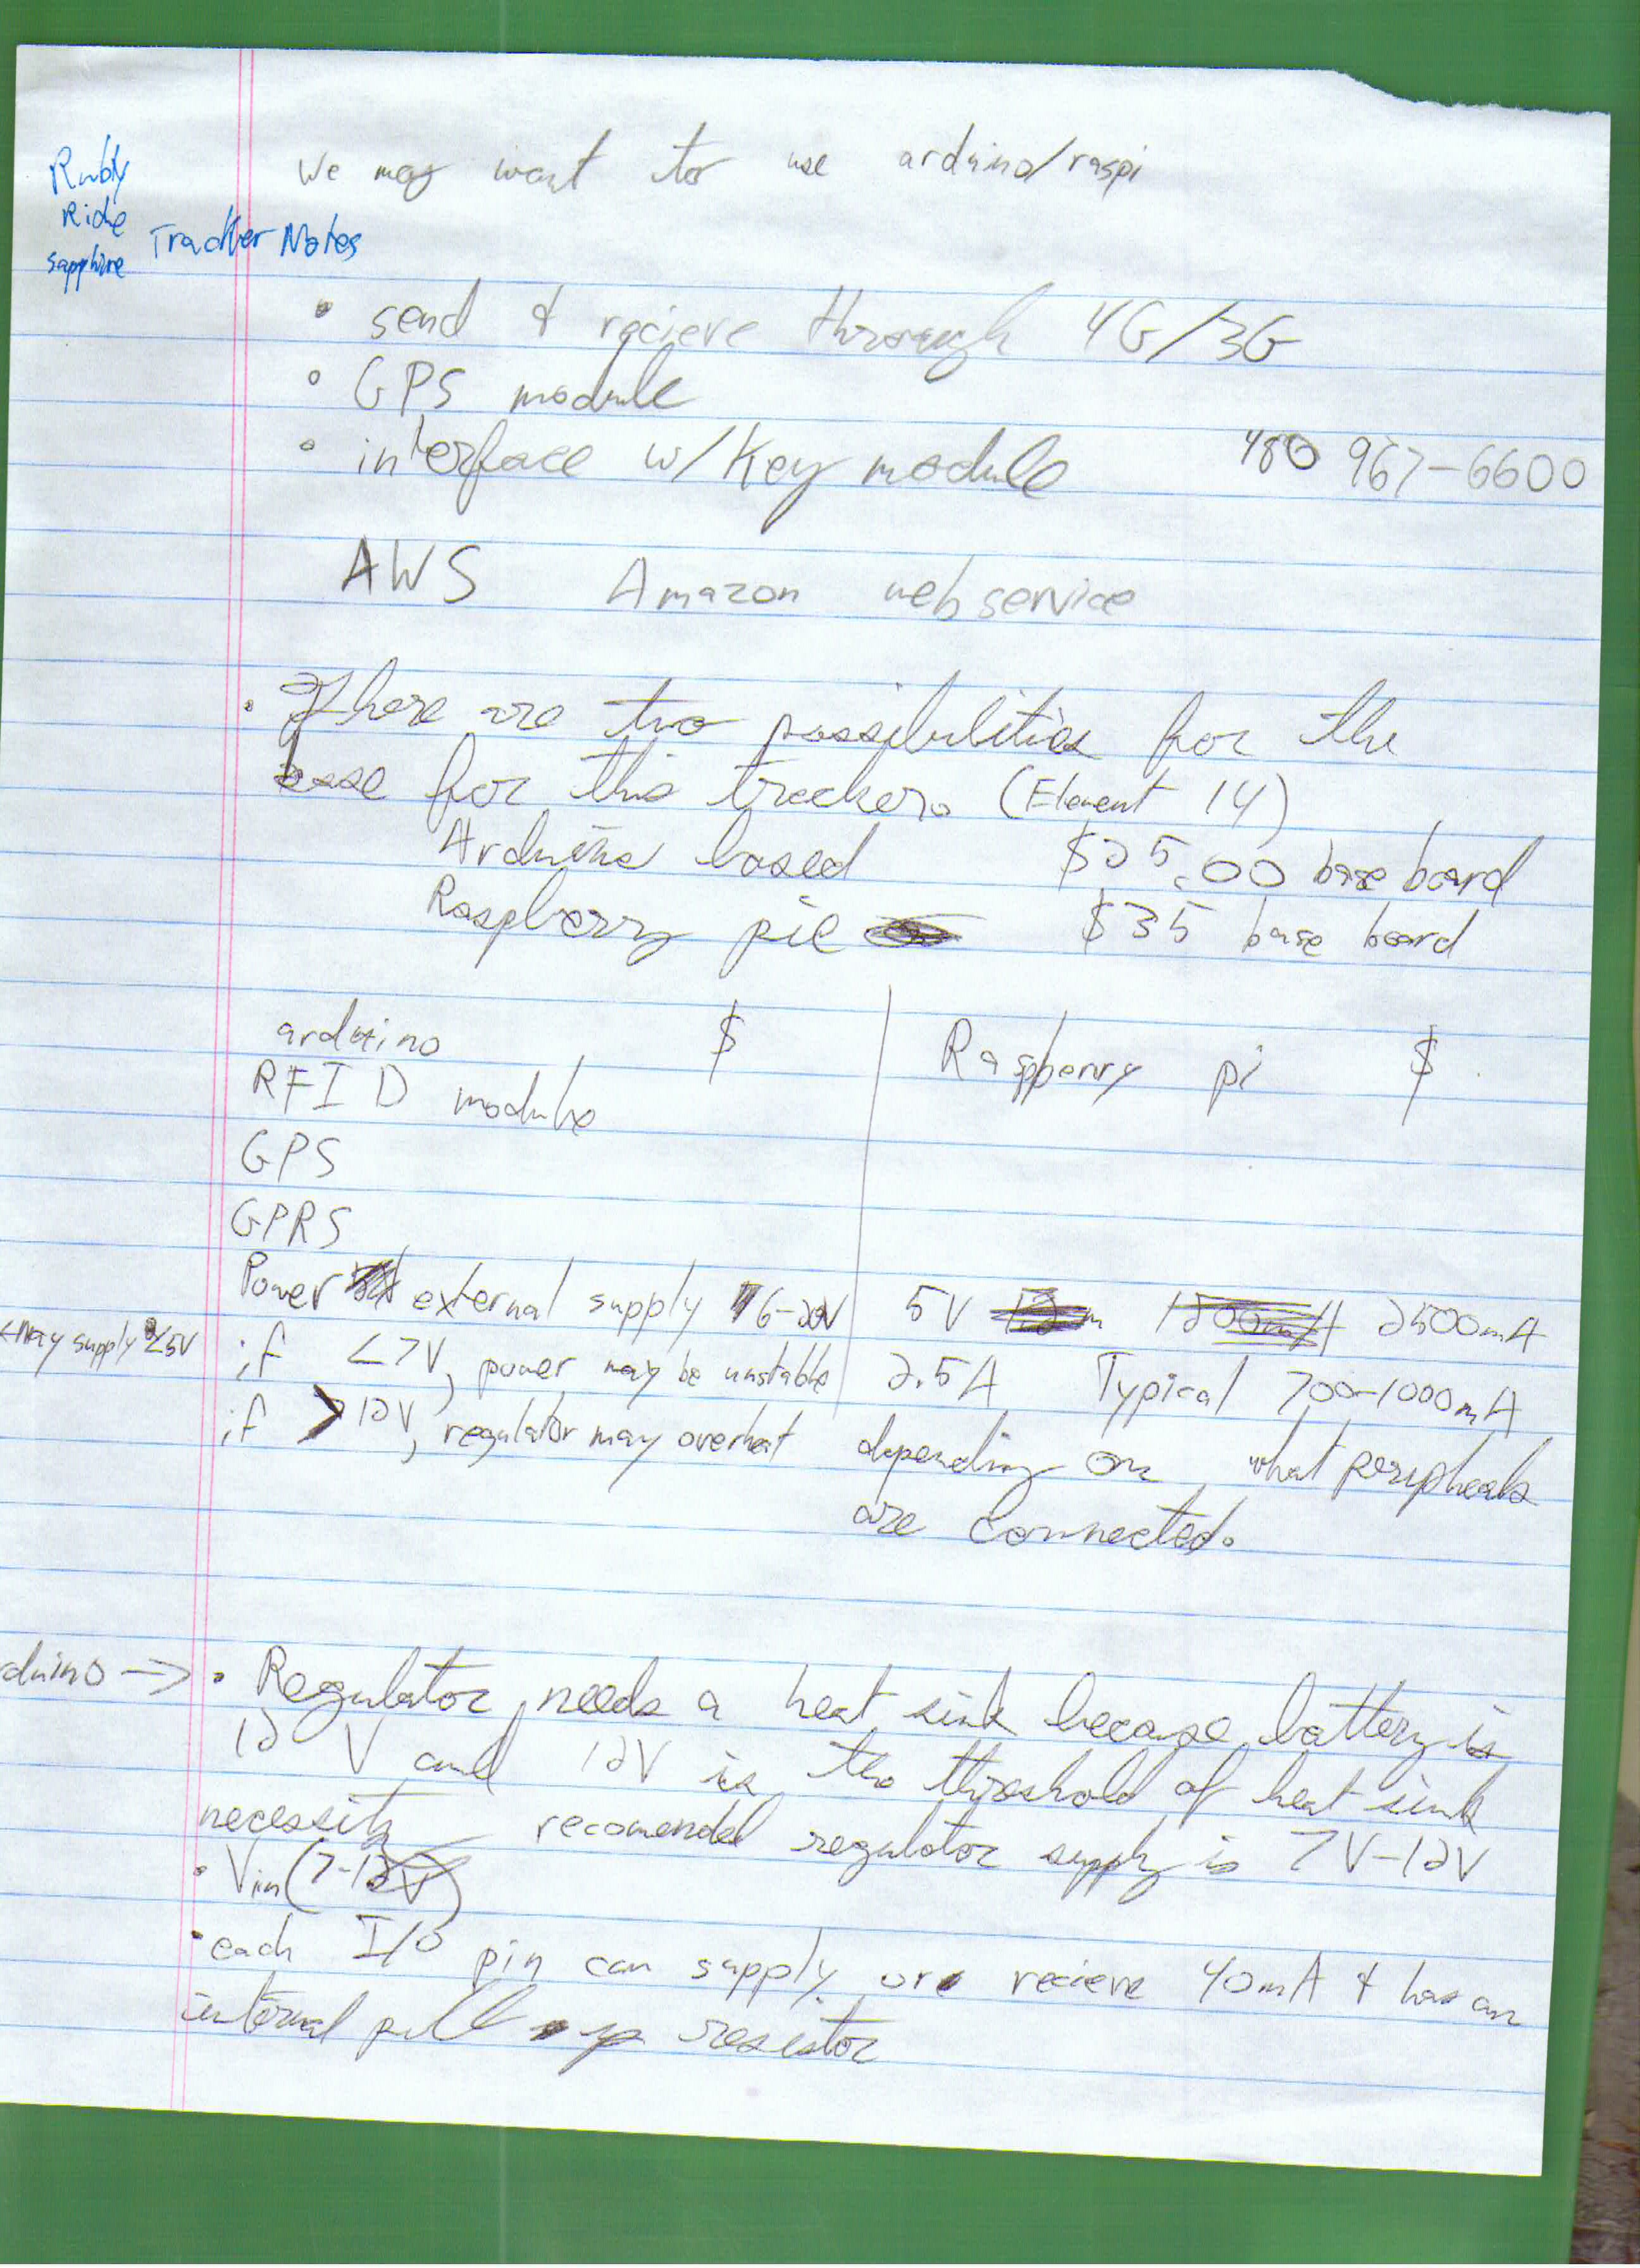 We may want to use arduino/raspi
Ruby
Ride
sapphire
Tracker Notes
• send & recieve through 4G/3G
• GPS module
• interface w/ Key module
480 967-6600
AWS Amazon web service
• There are two possibilities for the
base for this tracker. (Element 14)
Arduino based $25.00 base board
Raspberry pie $35 base board
arduino $
Raspberry pi $
RFID module
GPS
GPRS
Power external supply 6-20V
<7V may supply <5V
if <7V, power may be unstable
if >12V, regulator may overheat
5V 2500mA
2.5A Typical 700-1000mA
depending on what peripheals
are connected.
duino → • Regulator needs a heat sink because battery is
12 V and 12V is the threshold of heat sink
necessity recomended regulator supply is 7V-12V
• Vin (7-12V)
• each I/O pin can supply or recieve 40mA & has an
internal pull up resistor